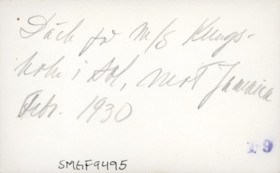 Däck på M/S Kungs-
holm i sol, mot Jamaica
Febr. 1930
T 9
SMGF9495